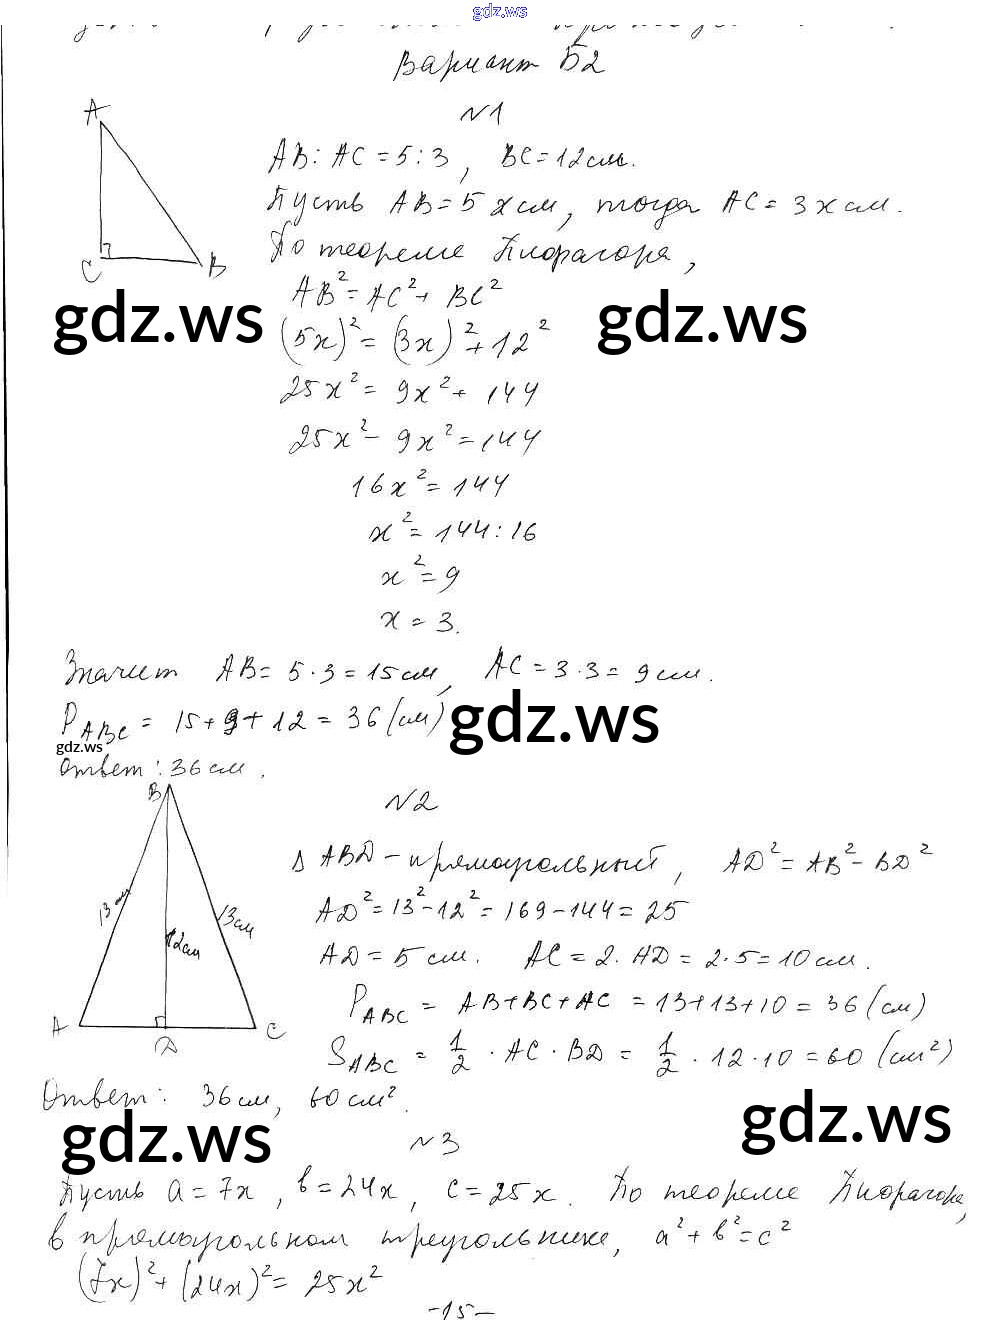 gdz.ws
Вариант Б2
№1
A
C
B
AB : AC = 5 : 3, BC = 12 см.
Пусть AB = 5x см, тогда AC = 3x см.
По теореме Пифагора,
AB² = AC² + BC²
gdz.ws
gdz.ws
(5x)² = (3x)² + 12²
25x² = 9x² + 144
25x² - 9x² = 144
16x² = 144
x² = 144 : 16
x² = 9
x = 3.
Значит AB = 5 · 3 = 15 см, AC = 3 · 3 = 9 см.
P ABC = 15 + 9 + 12 = 36 (см)
gdz.ws
gdz.ws
Ответ: 36 см.
№2
B
13 см
13 см
12 см
A
D
C
Δ ABD - прямоугольный, AD² = AB² - BD²
AD² = 13² - 12² = 169 - 144 = 25
AD = 5 см. AC = 2 · AD = 2 · 5 = 10 см.
P ABC = AB + BC + AC = 13 + 13 + 10 = 36 (см)
S ABC = 1/2 · AC · BD = 1/2 · 12 · 10 = 60 (см²)
Ответ: 36 см, 60 см².
gdz.ws
gdz.ws
№3
Пусть a = 7x, b = 24x, c = 25x. По теореме Пифагора,
в прямоугольном треугольнике, a² + b² = c²
(7x)² + (24x)² = 25x²
-15-